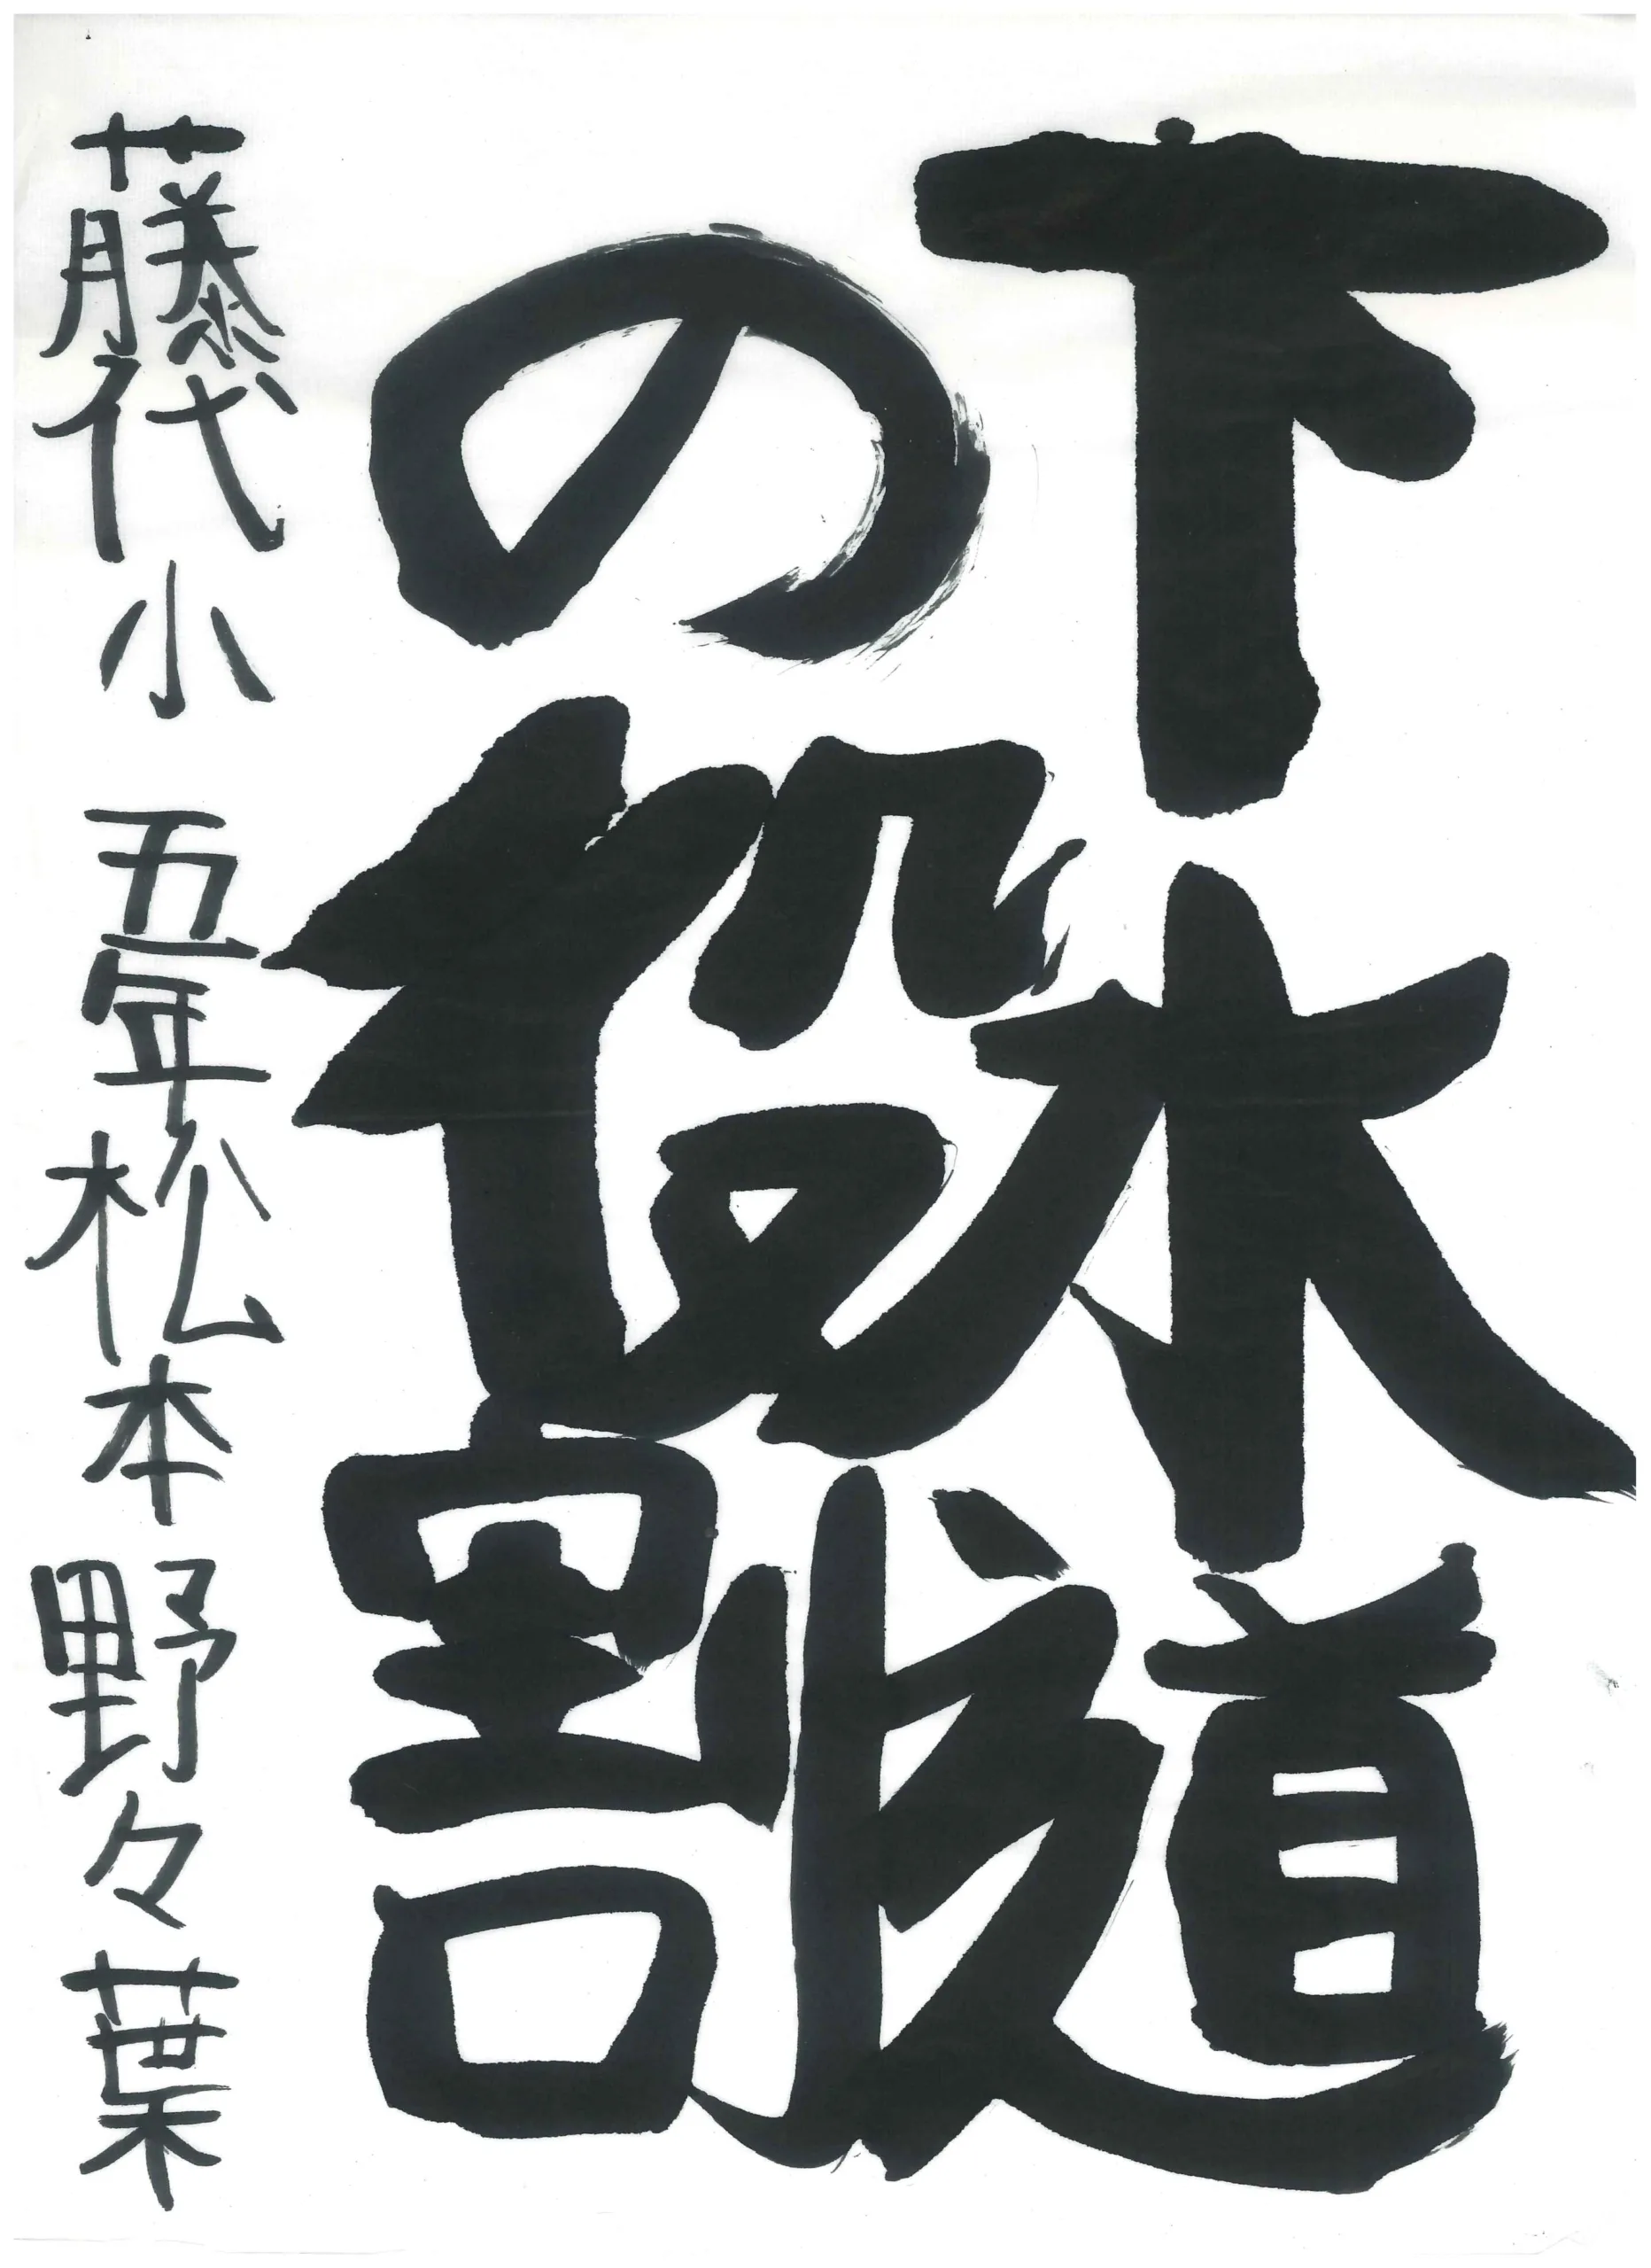 下水道
の役割
藤代小 五年 松本野々葉